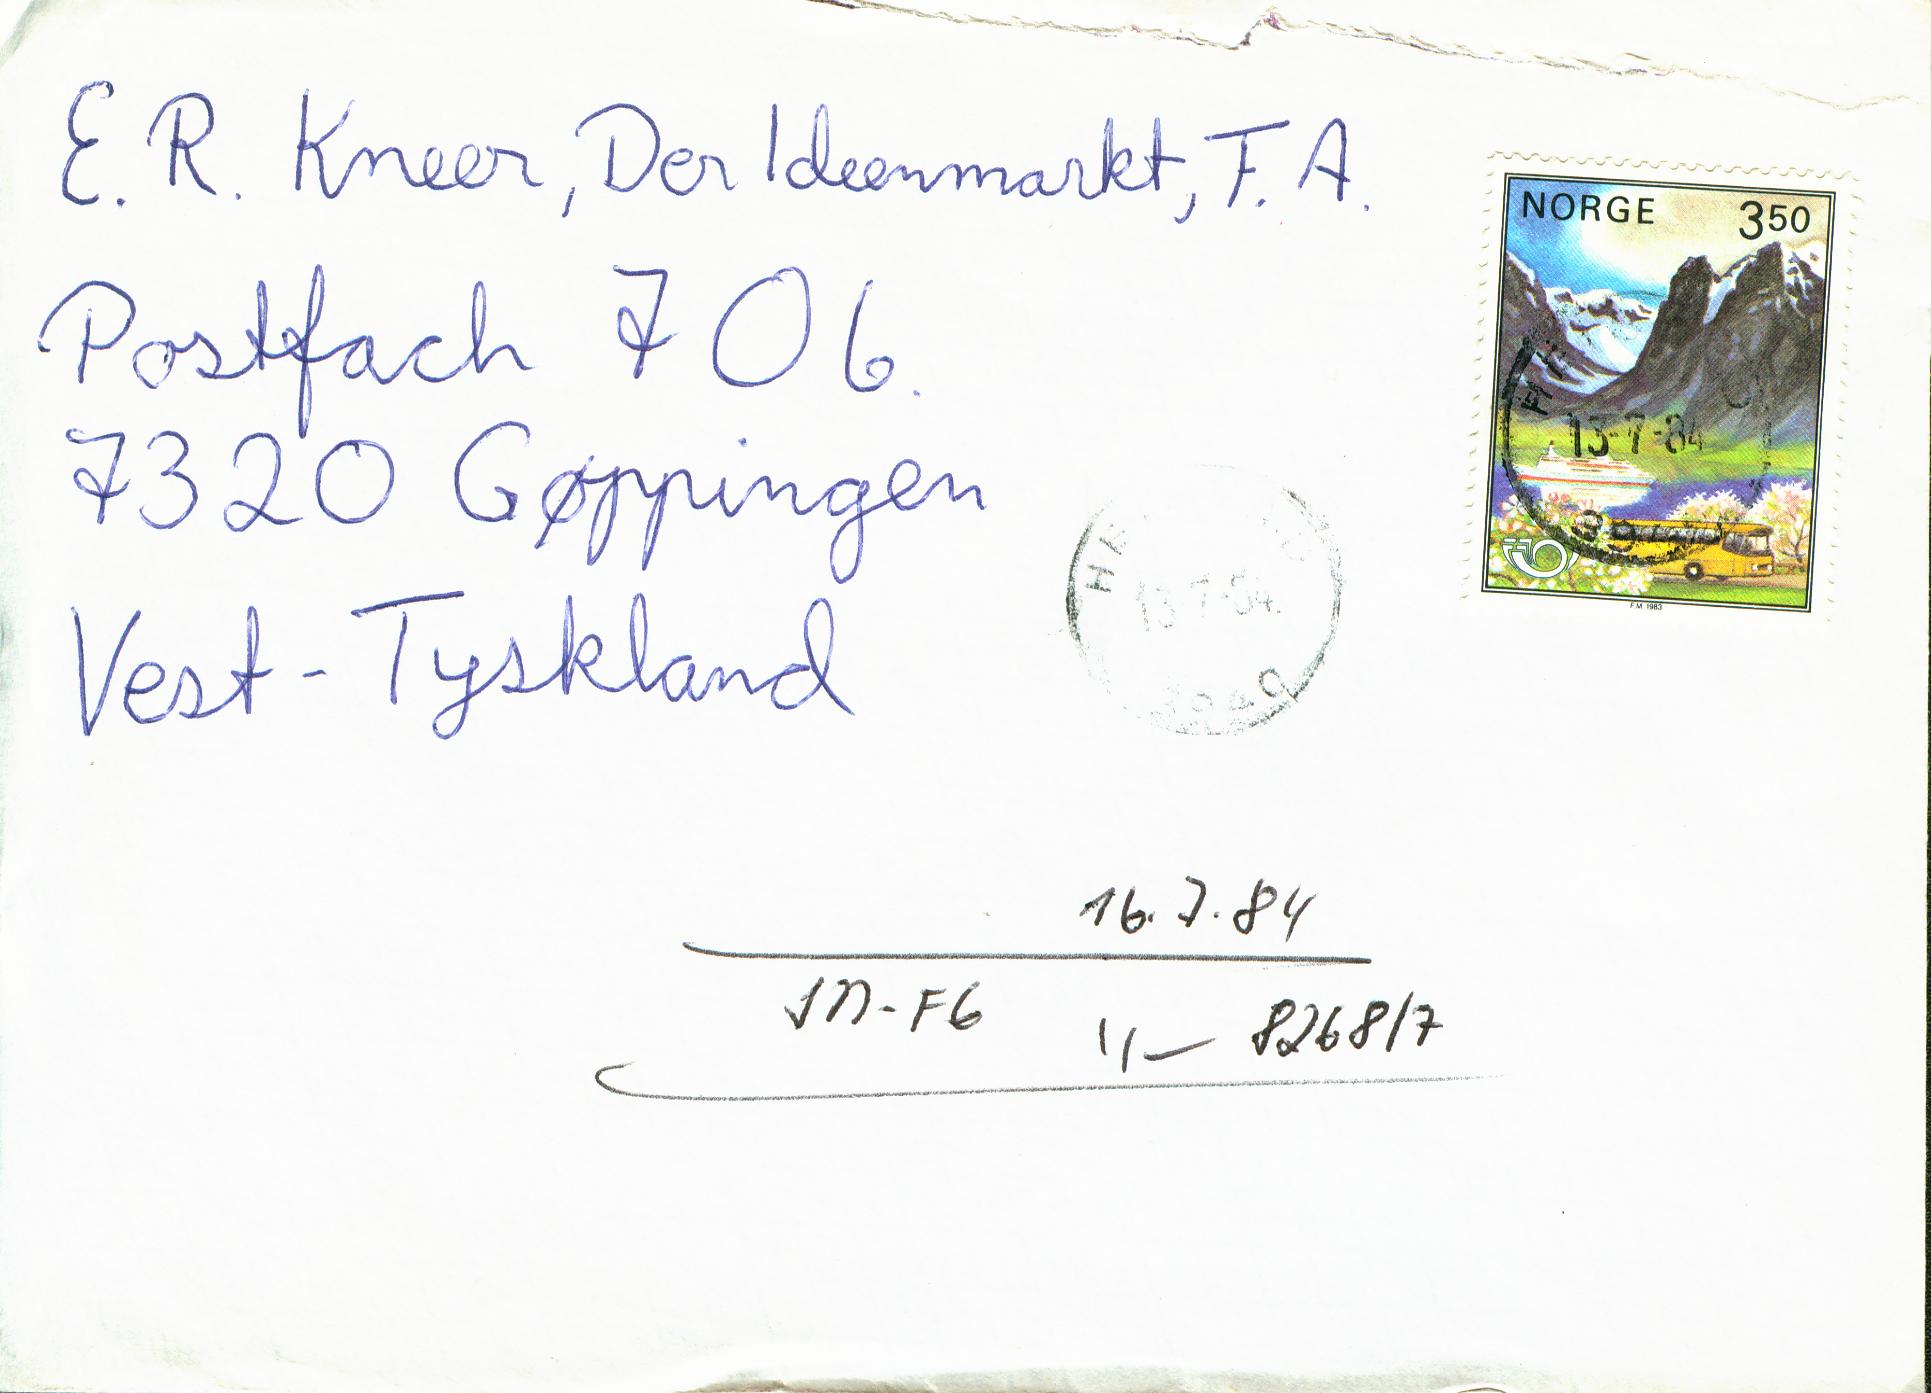 E. R. Kneer, Der Ideenmarkt, F. A.
Postfach 706.
7320 Gøppingen
Vest-Tyskland
NORGE 350
13-7-84
F.M 1983
13-7-84
16.7.84
8268/7